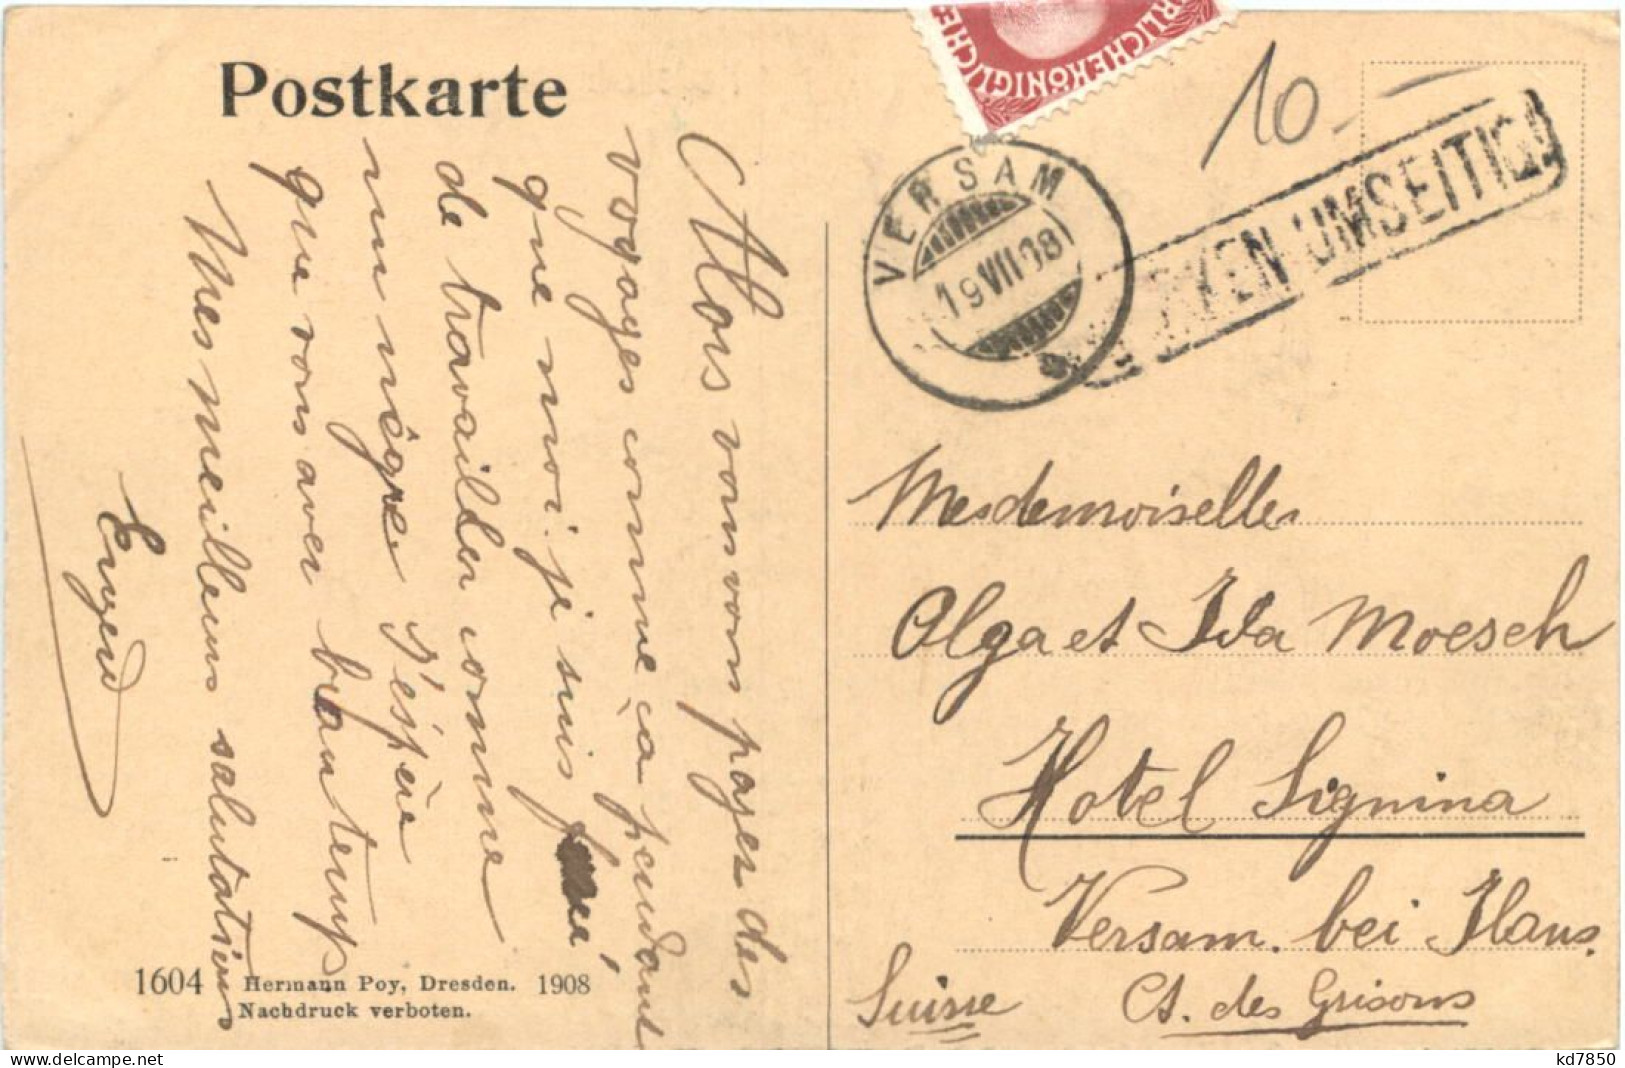 Postkarte
Alors vous vous payez des
voyages comme ça pendant
que moi je suis forcé
de travailler comme
un nègre J'éspère
que vous avez beau temps
Mes meilleures salutations
1604 Hermann Poy, Dresden. 1908
Nachdruck verboten.
RLICHEKÖNIGLICHE
10
VERSAM
19 VII 08
KEN UMSEITIG!
Mesdemoiselles
Olga et Ida Moesch
Hotel Signina
Versam. bei Ilans.
Suisse Ct. des Grisons
kd7850